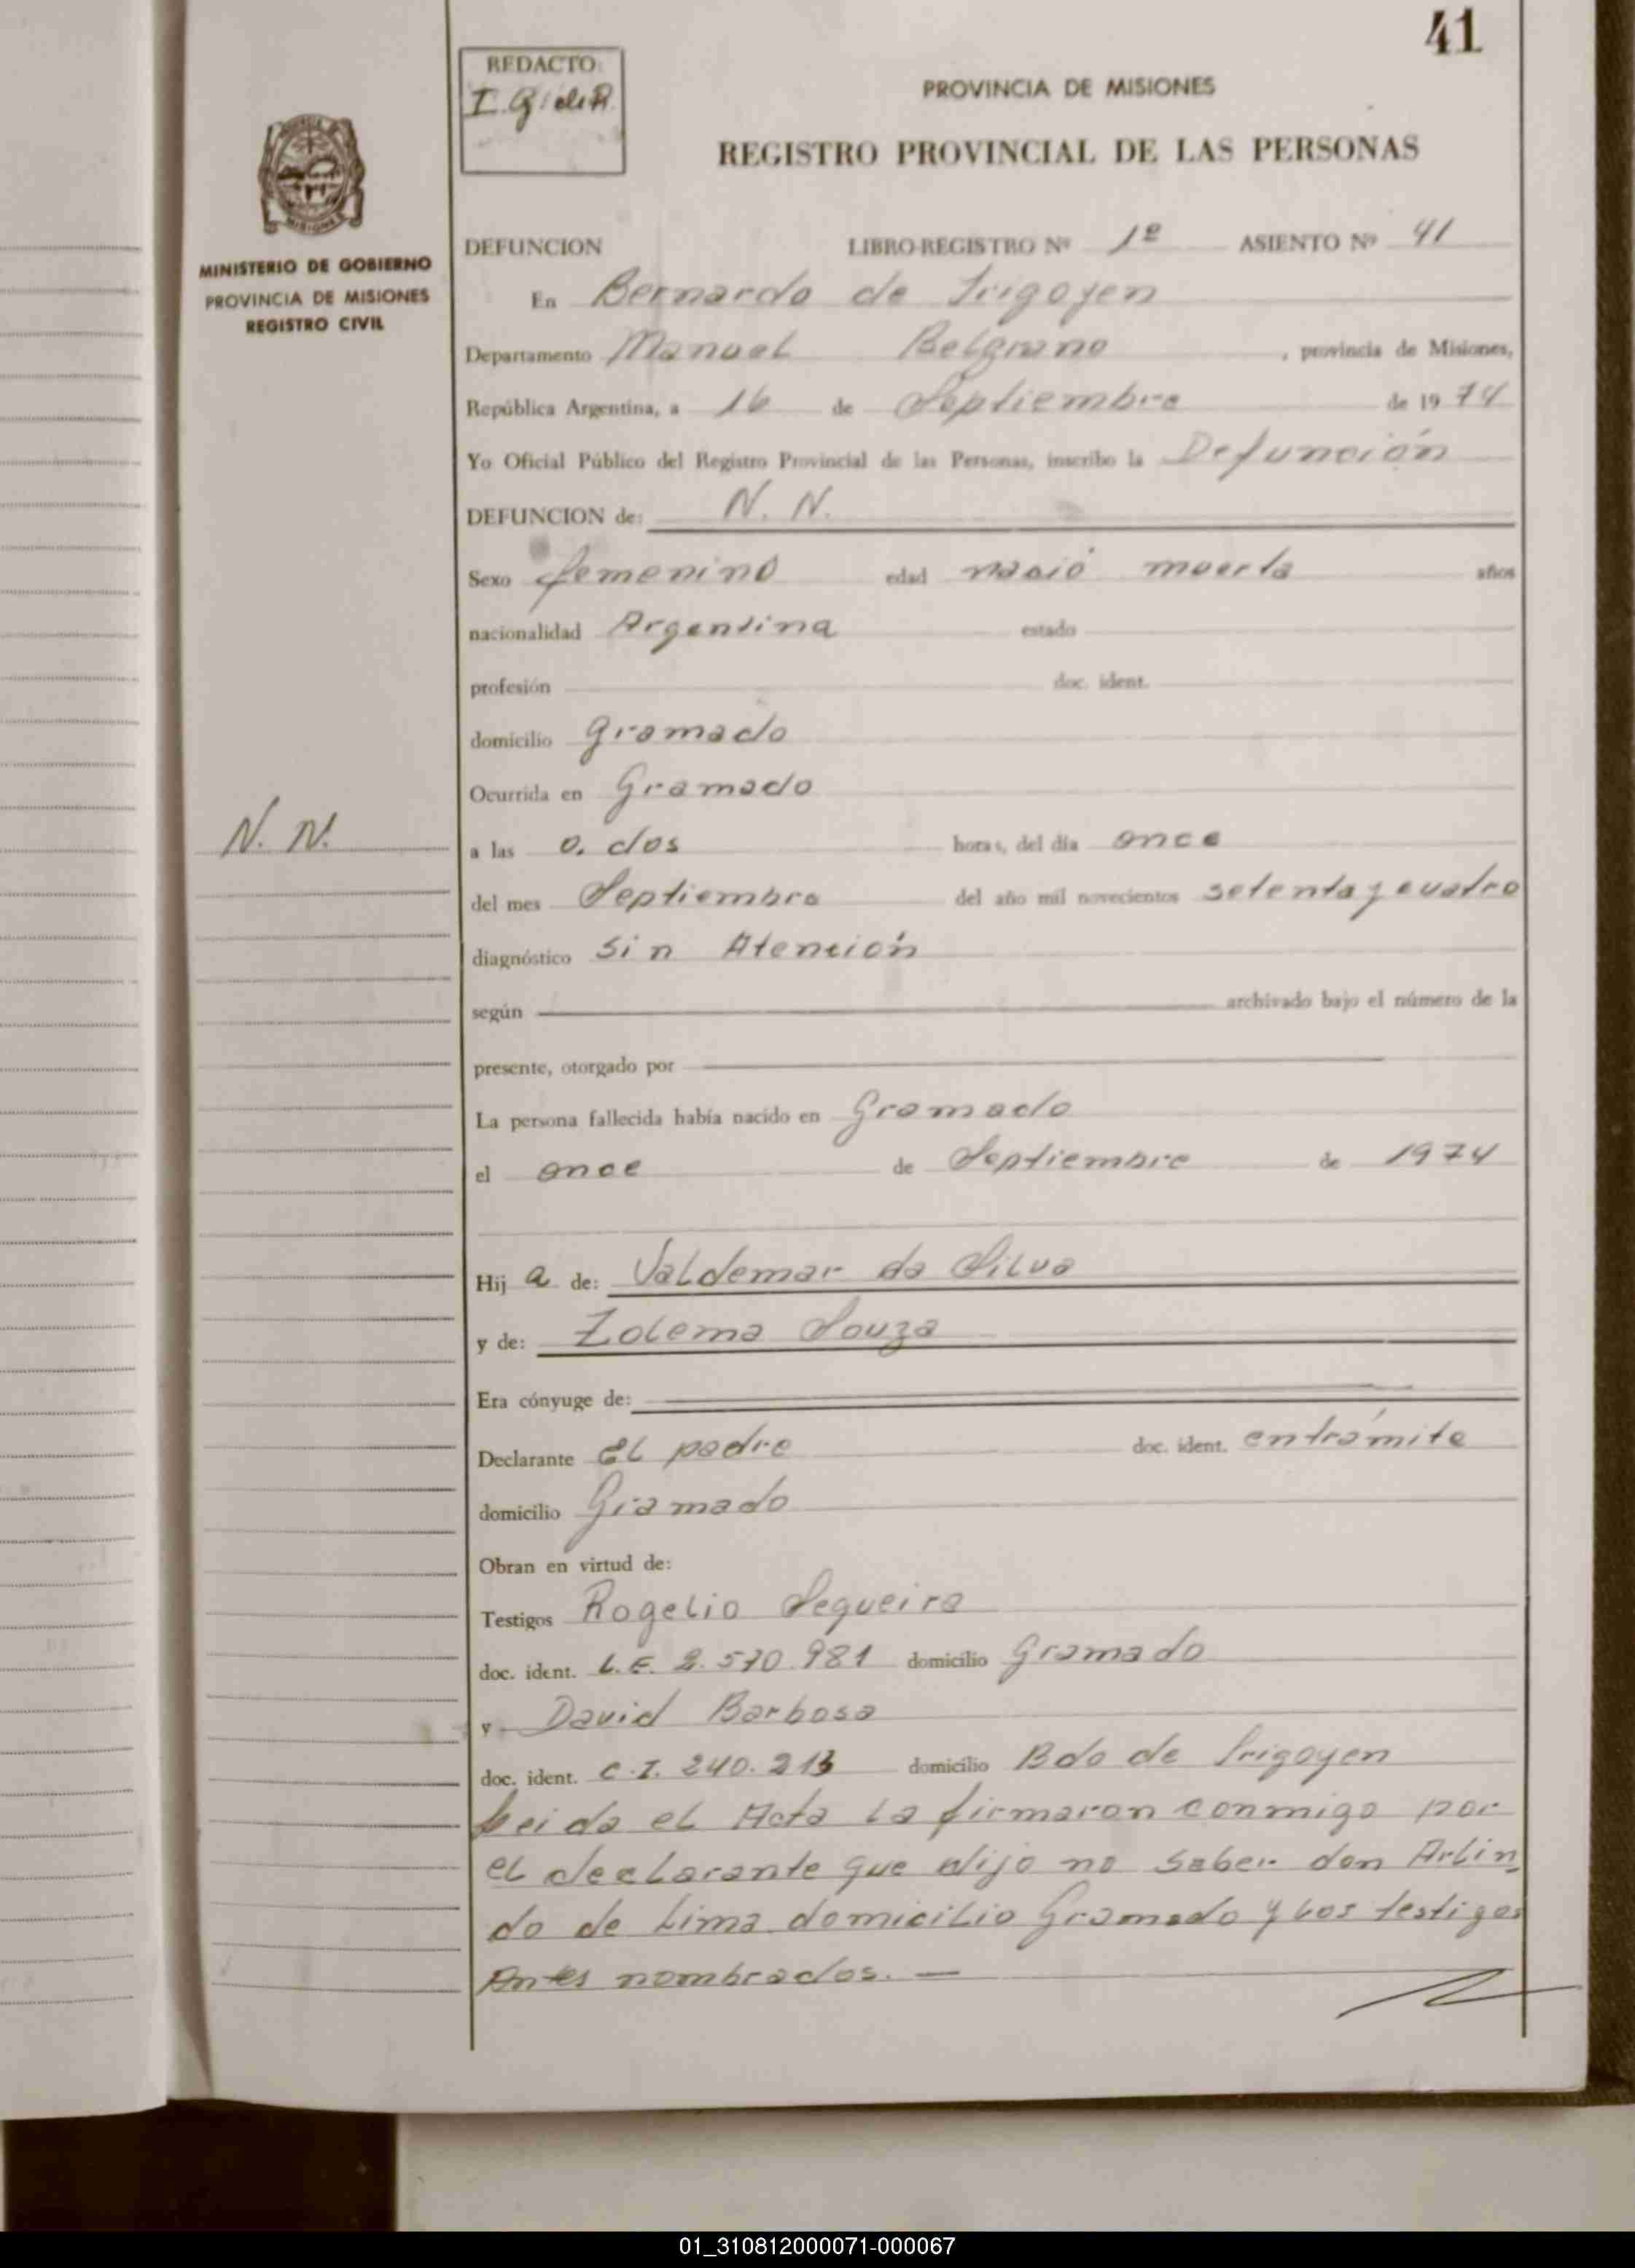 41
REDACTO:
PROVINCIA DE MISIONES
REGISTRO PROVINCIAL DE LAS PERSONAS
MINISTERIO DE GOBIERNO
PROVINCIA DE MISIONES
REGISTRO CIVIL
DEFUNCION LIBRO-REGISTRO Nº 1º ASIENTO Nº 41
En Bernardo de Irigoyen
Departamento Manuel Belgrano, provincia de Misiones,
República Argentina, a 16 de Septiembre de 1974
Yo Oficial Público del Registro Provincial de las Personas, inscribo la Defunción
DEFUNCION de: N. N.
Sexo femenino edad nació muerta años
nacionalidad Argentina estado
profesión doc. ident.
domicilio Gramado
Ocurrida en Gramado
N. N.
a las 0. dos horas, del día once
del mes Septiembre del año mil novecientos setenta y cuatro
diagnóstico sin Atención
según archivado bajo el número de la
presente, otorgado por
La persona fallecida había nacido en Gramado
el once de Septiembre de 1974
Hij a de: Valdemar da Silva
y de: Zolema Souza
Era cónyuge de:
Declarante El padre doc. ident. entrámite
domicilio Gramado
Obran en virtud de:
Testigos Rogelio Sequeira
doc. ident. L.E. 2.570.981 domicilio Gramado
y David Barbosa
doc. ident. C.I. 240.213 domicilio Bdo de Irigoyen
Leida el Acta la firmaron conmigo por
el declarante que dijo no saber don Arlin
do de Lima domicilio Gramado y los testigos
Antes nombrados. —
01_310812000071-000067